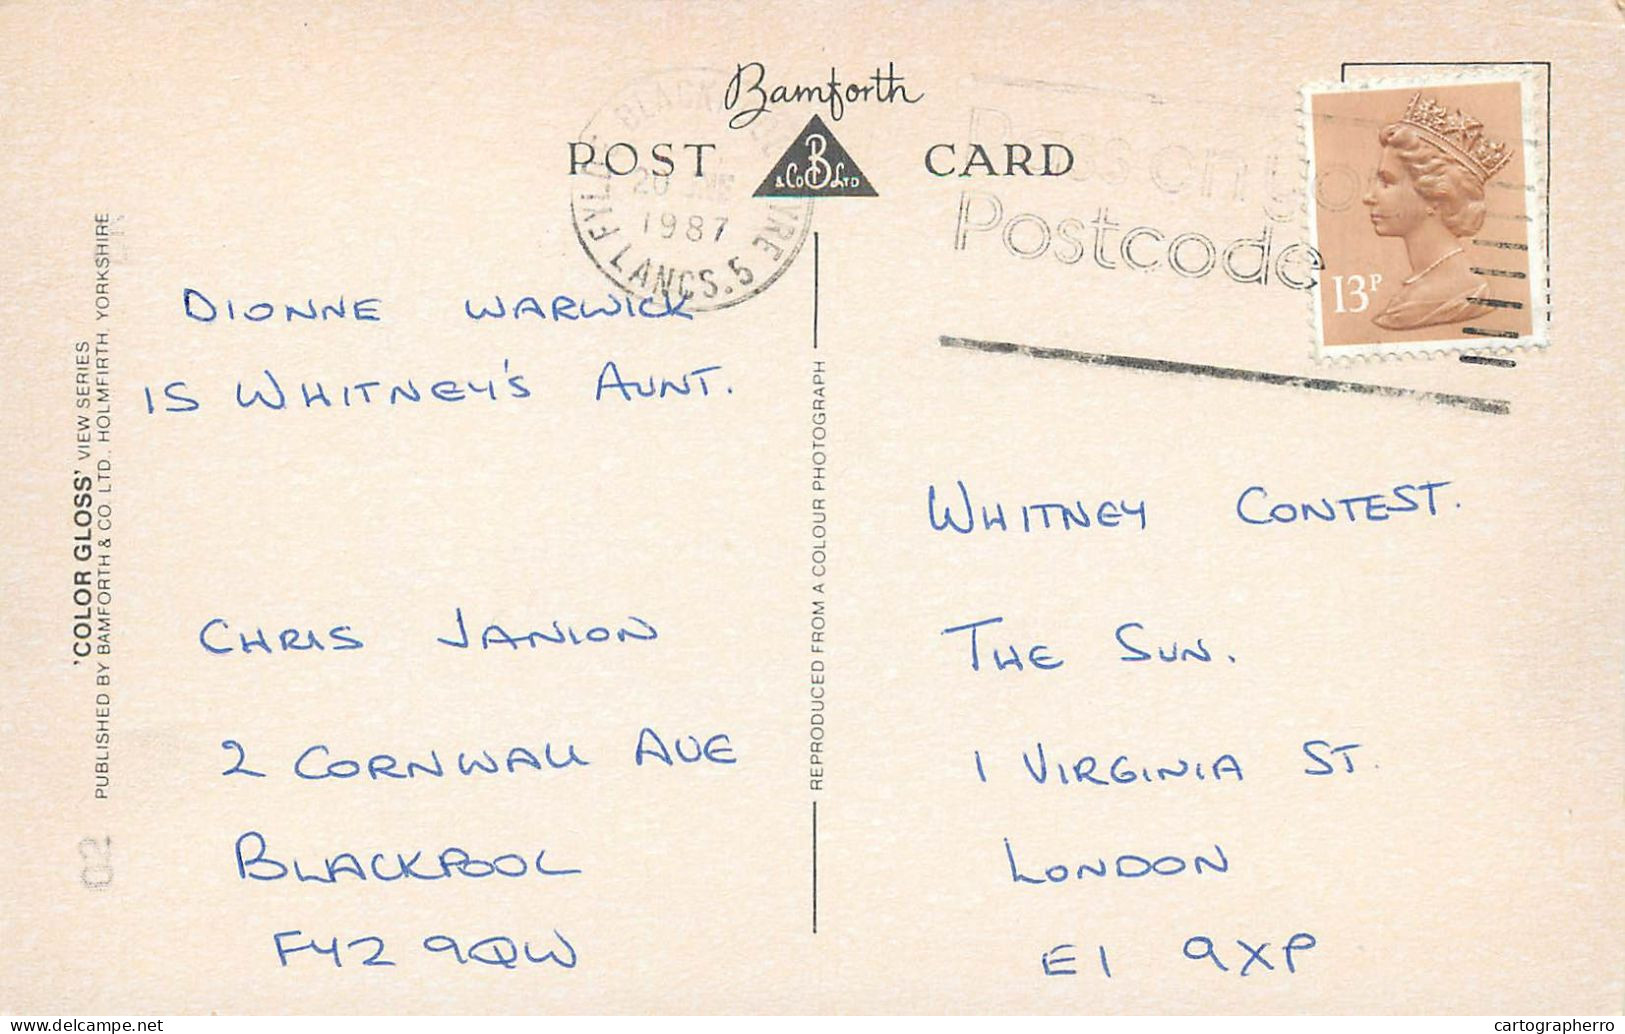 Bamforth
POST CARD
B
& Co LTD
BLACK
20 JNE
1987
FYLDE
LANCS. 5
Pass on your
Postcode
13P
DIONNE WARWICK
IS WHITNEY'S AUNT.
CHRIS JANION
2 CORNWALL AVE
BLACKPOOL
FY2 9QW
'COLOR GLOSS' VIEW SERIES
PUBLISHED BY BAMFORTH & CO. LTD. HOLMFIRTH, YORKSHIRE
REPRODUCED FROM A COLOUR PHOTOGRAPH
WHITNEY CONTEST.
THE SUN.
1 VIRGINIA ST.
LONDON
E1 9XP
delcampe.net
cartographerro